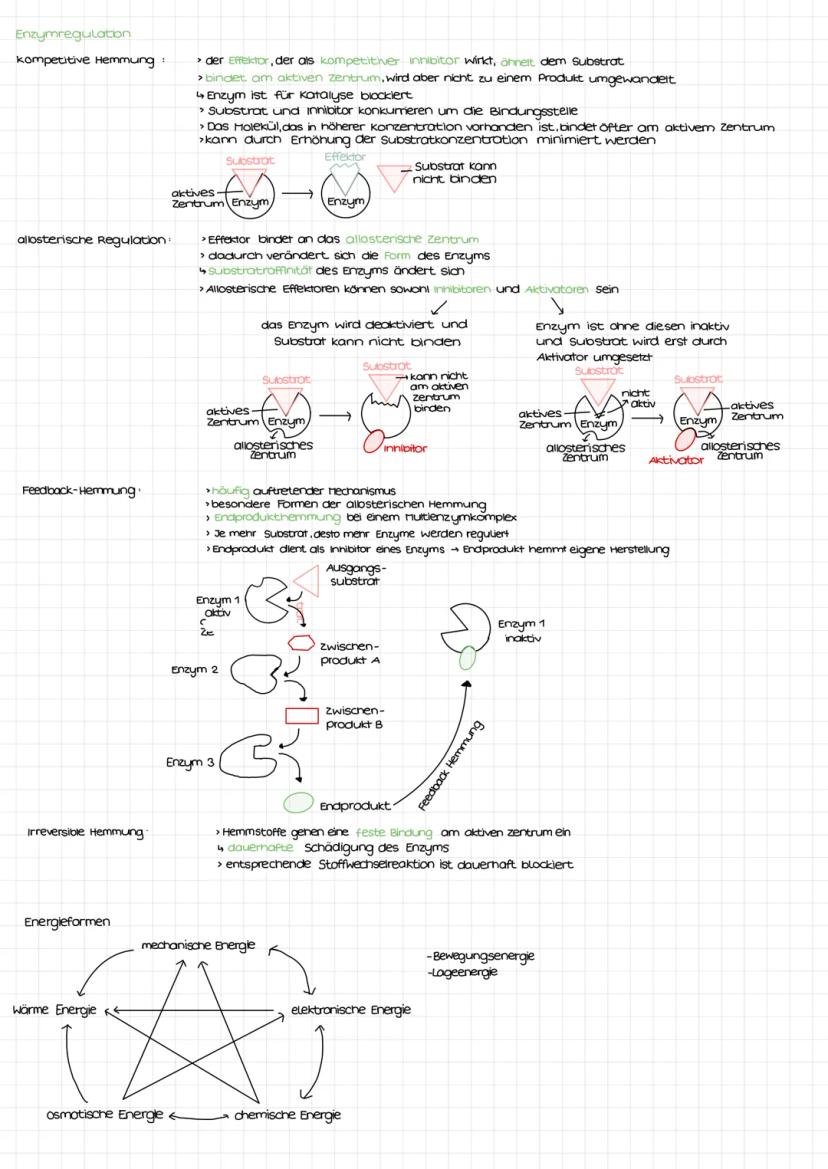 Enzymregulation
Kompetitive Hemmung :
> der Effektor, der als kompetitiver Inhibitor wirkt, ähnelt dem Substrat
> bindet am aktiven Zentrum, wird aber nicht zu einem Produkt umgewandelt
↳ Enzym ist für Katalyse blockiert
> Substrat und Inhibitor konkurrieren um die Bindungsstelle
> Das Molekül, das in höherer Konzentration vorhanden ist, bindet öfter am aktivem Zentrum
> kann durch Erhöhung der Substratkonzentration minimiert werden
Substrat
Effektor
aktives
Zentrum
Enzym
Enzym
Substrat kann
nicht binden
allosterische Regulation:
> Effektor bindet an das allosterische Zentrum
> dadurch verändert sich die Form des Enzyms
↳ Substratroffinität des Enzyms ändert sich
> Allosterische Effektoren können sowohl Inhibitoren und Aktivatoren sein
das Enzym wird deaktiviert und
Substrat kann nicht binden
Enzym ist ohne diesen inaktiv
und Substrat wird erst durch
Aktivator umgesetzt
Substrat
aktives
Zentrum
Enzym
allosterisches
Zentrum
Substrat
kann nicht
am aktiven
Zentrum
binden
Inhibitor
Substrat
nicht
aktiv
aktives
Zentrum
Enzym
allosterisches
Zentrum
Substrat
aktives
Zentrum
Enzym
allosterisches
Zentrum
Aktivator
Feedback-Hemmung:
> häufig auftretender Mechanismus
> besondere Formen der allosterischen Hemmung
> Endprodukthemmung bei einem Multienzymkomplex
> Je mehr Substrat, desto mehr Enzyme werden reguliert
> Endprodukt dient als Inhibitor eines Enzyms → Endprodukt hemmt eigene Herstellung
Ausgangs-
substrat
Enzym 1
aktiv
Zwischen-
produkt A
Enzym 2
Zwischen-
produkt B
Enzym 3
Endprodukt
Feedback Hemmung
Enzym 1
inaktiv
Irreversible Hemmung:
> Hemmstoffe gehen eine feste Bindung am aktiven Zentrum ein
↳ dauerhafte Schädigung des Enzyms
> entsprechende Stoffwechselreaktion ist dauerhaft blockiert
Energieformen
mechanische Energie
-Bewegungsenergie
-Lageenergie
Wärme Energie
elektronische Energie
osmotische Energie
chemische Energie